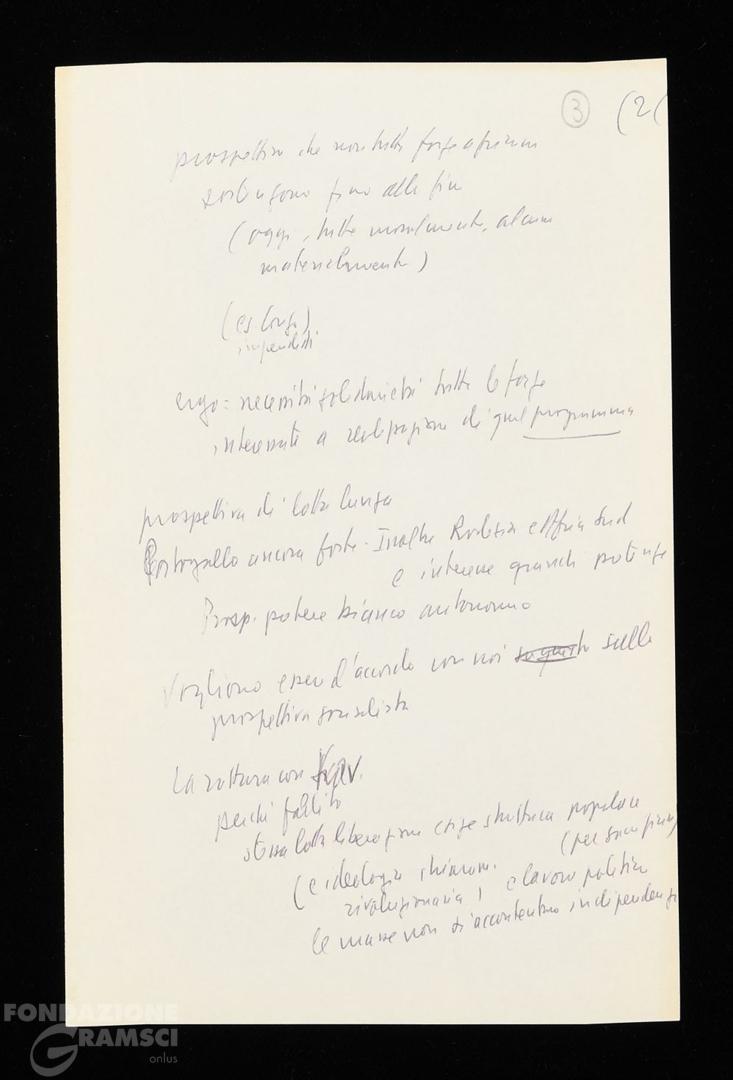 3 (2(
prospettiva che non tutte forze africane
sostengono fino alla fine
(oggi, tutte moralmente, alcune
materialmente)
(es Congo)
impediti
ergo = necessità solidarietà tutte le forze
interessate a realizzazione di quel programma
prospettiva di lotta lunga
Portogallo ancora forte. Inoltre Rodesia e Africa Sud
e interesse grandi potenze
Prosp. potere bianco autonomo
Vogliono essere d'accordo con noi sulla
prospettiva socialista
La rottura con
perché fallito
stessa lotta liberazione esige struttura popolare
(e ideologia rivoluzionaria) e lavoro politico
le masse non si accontentano indipendenza
FONDAZIONE
GRAMSCI
onlus